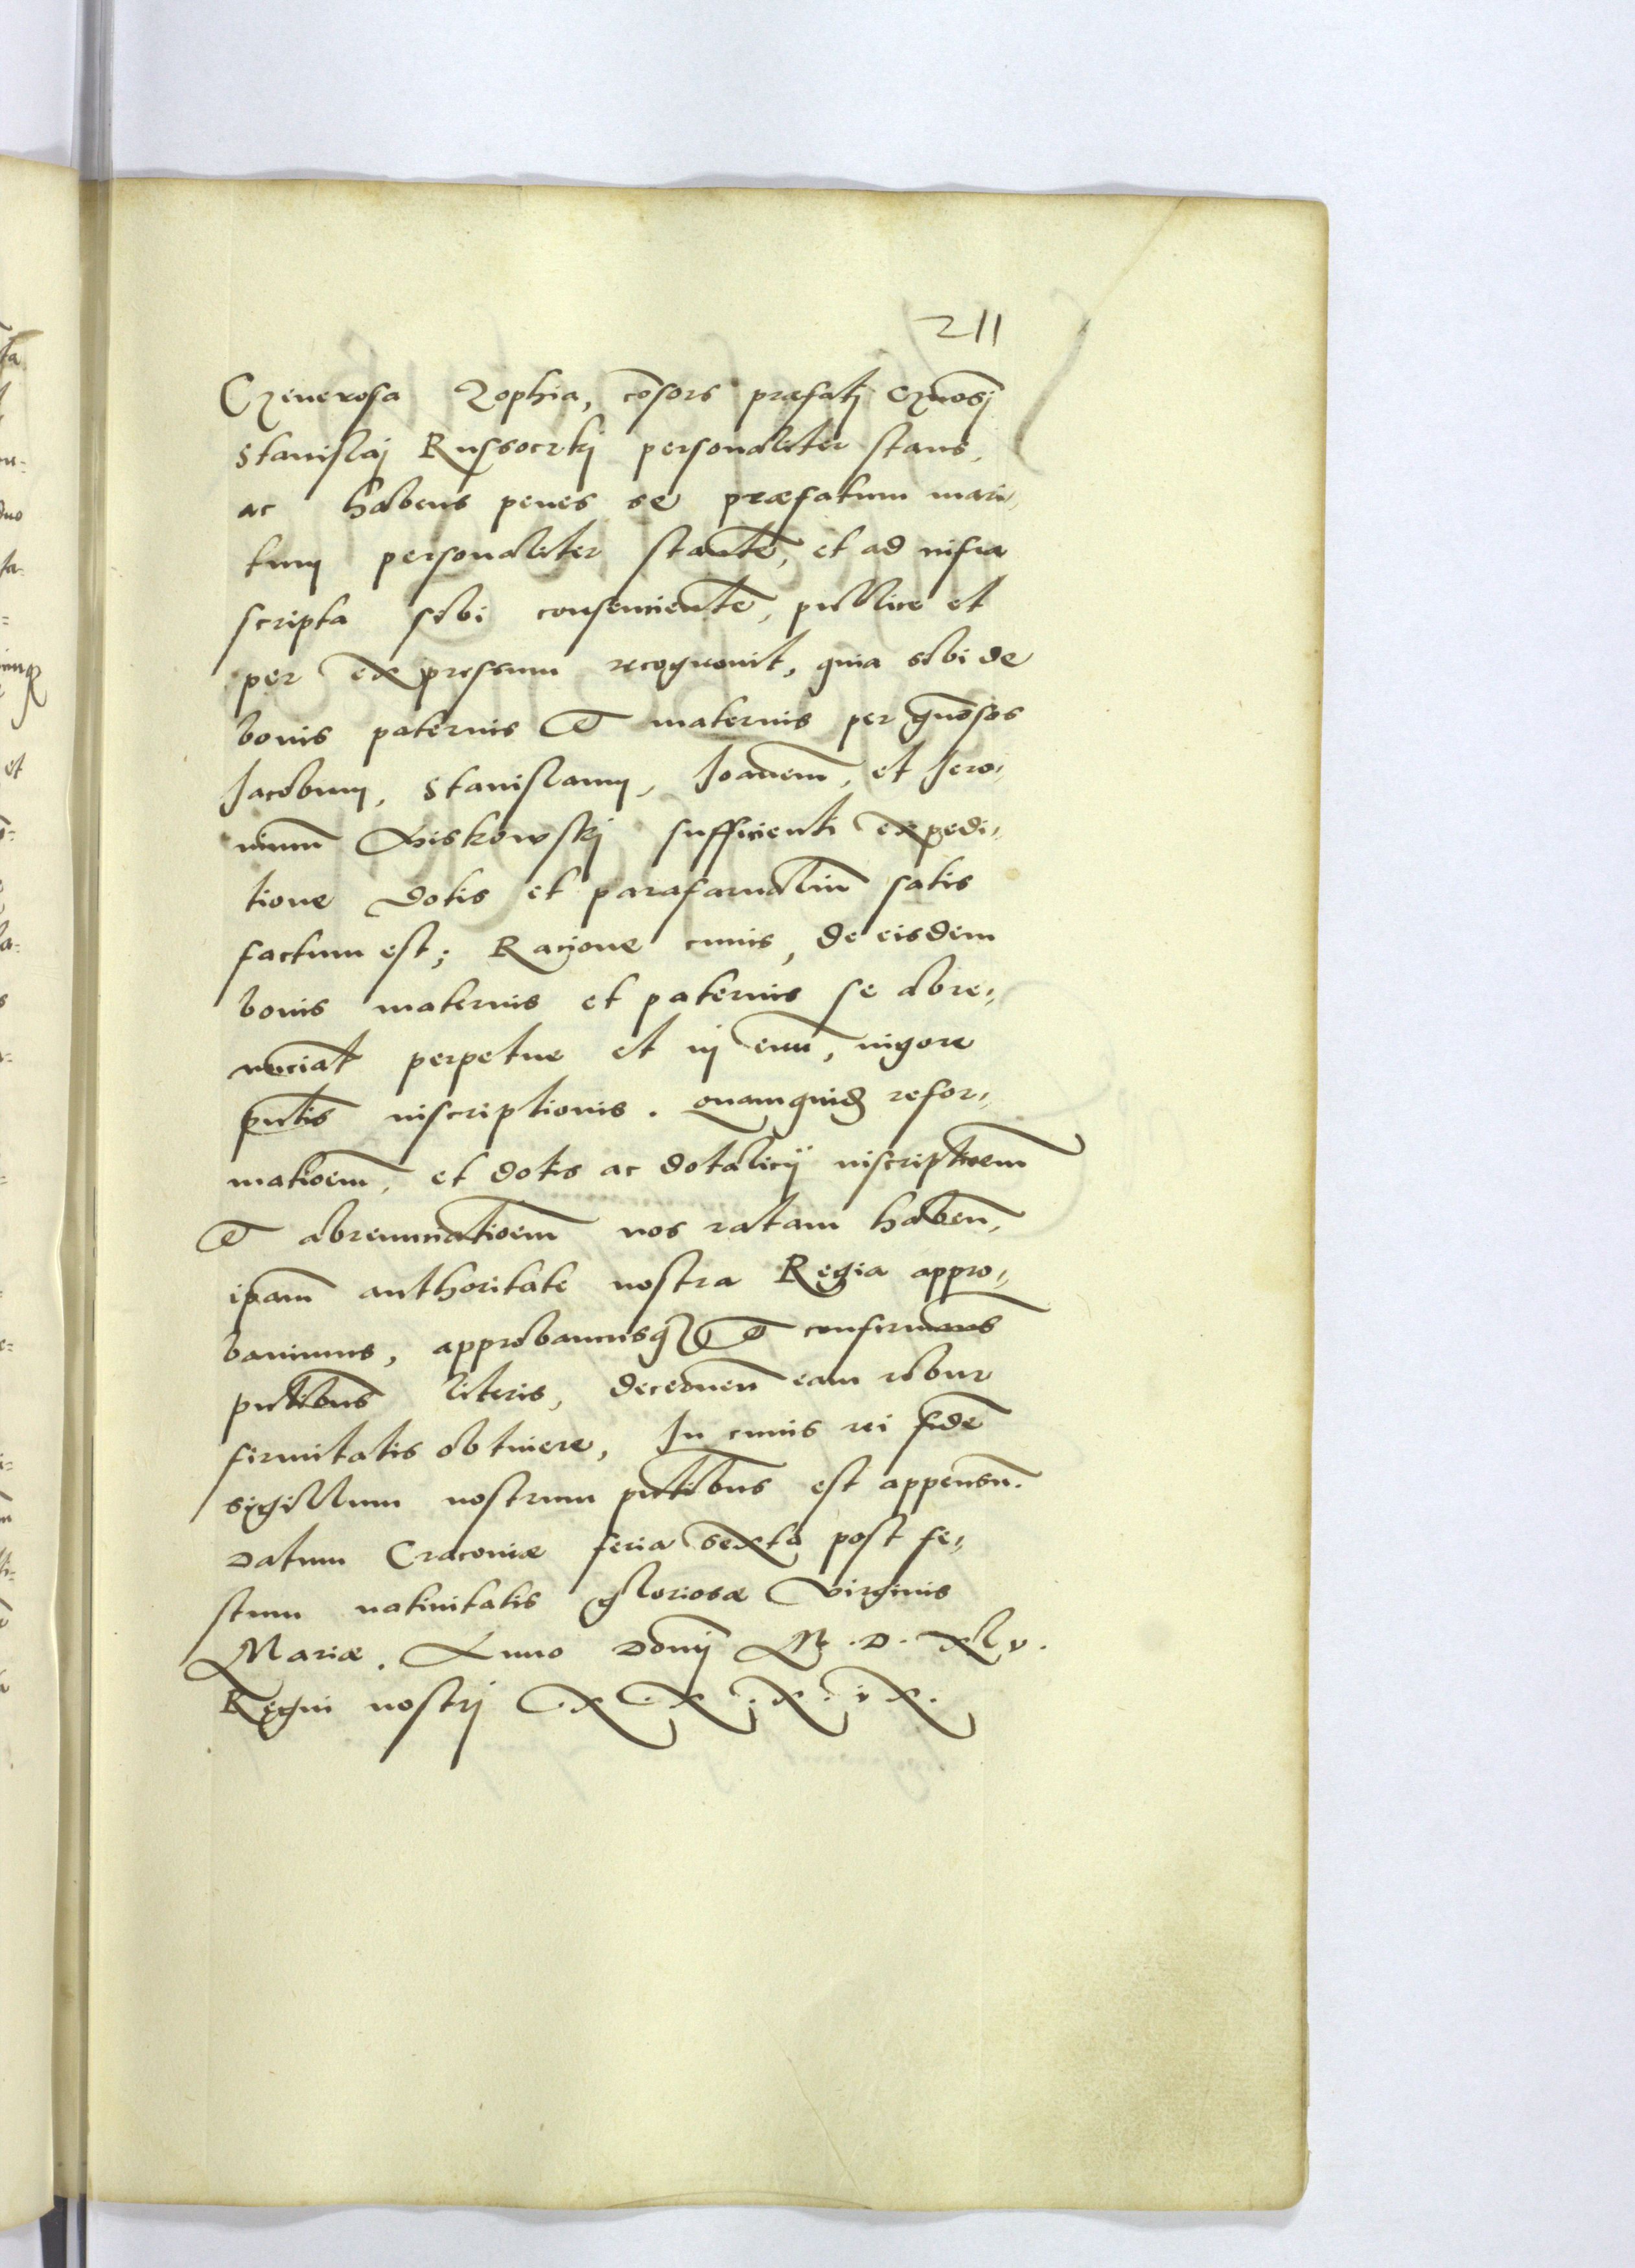 211
Generosa Zophia, cōsors præfatj Gn̄osj
Stanislaj Russoczkj personaliter stans,
ac habens penes se præfatum mari,,
tum personaliter stantē, et ad infra
scripta sibi consencientē, publice et
per expressum recognouit, quia sibi de
bonis paternis et maternis per gn̄osos
Jacobum, Stanislaum, Joanem̄, et Jero,,
nimum̄ Liskowskj sufficienti expedi,,
tione dotis et parafarnaliū satis
factum est; Racione cuius, de eisdem
bonis maternis et paternis se abre,,
nūciat perpetue et in euū, uigore
pn̄tis inscriptionis. Quamquidē refor,,
matioem̄, et dotis ac dotalicij inscriptioem̄
et abrenunciatioem̄ nos ratam haben̄,
ip̄am authoritate nostra Regia appro,,
bauimus, approbamusq₃ et confirmamus
pn̄tibus literis, decernen̄ eam robur
firmitatis obtinere, In cuius rei fidē
sigillum nostrum pn̄tibus est appensū.
Datum Cracoviæ feria sexta post fe,,
stum natiuitatis gloriosæ Virginis
Mariæ. Anno Domj M. D. xlv.
Regni nostrj .x.x.x.ix.